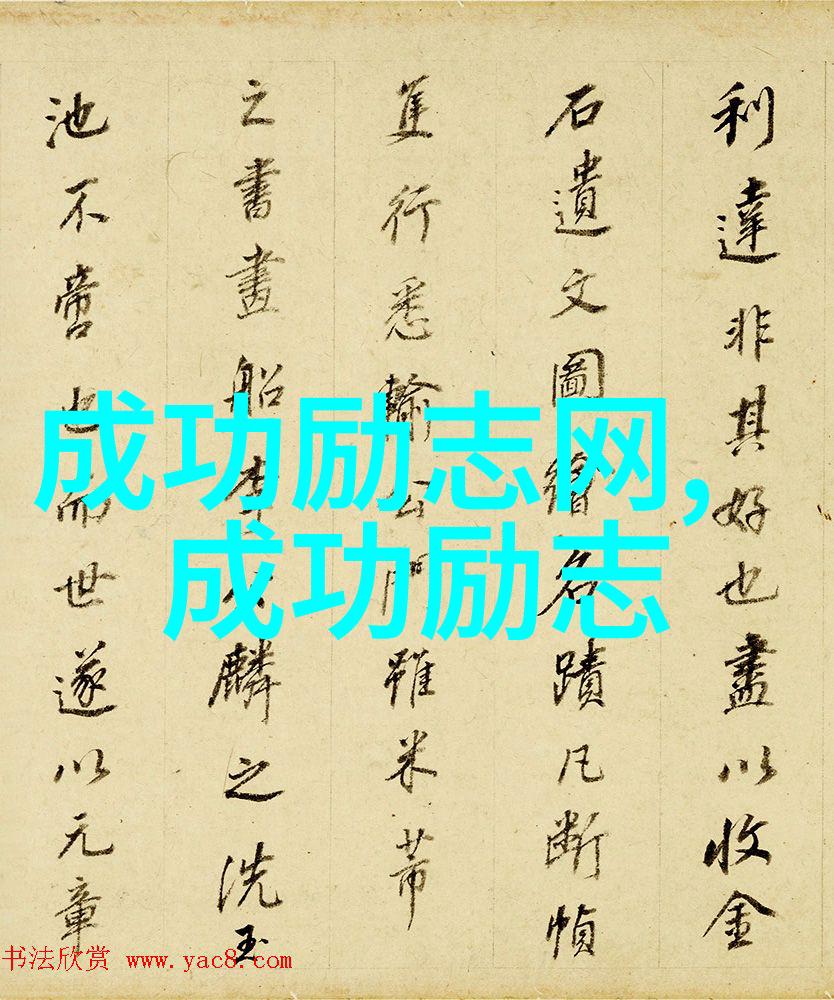 利達非其好也盡以收金
石遺文圖繪名蹟凡斷幀
隻行悉輸公門雖米芾
之書畫船李公麟之洗玉
池不啻也而世遂以元章
成功励志网,
成功励志
书法欣赏 www.yac8.com